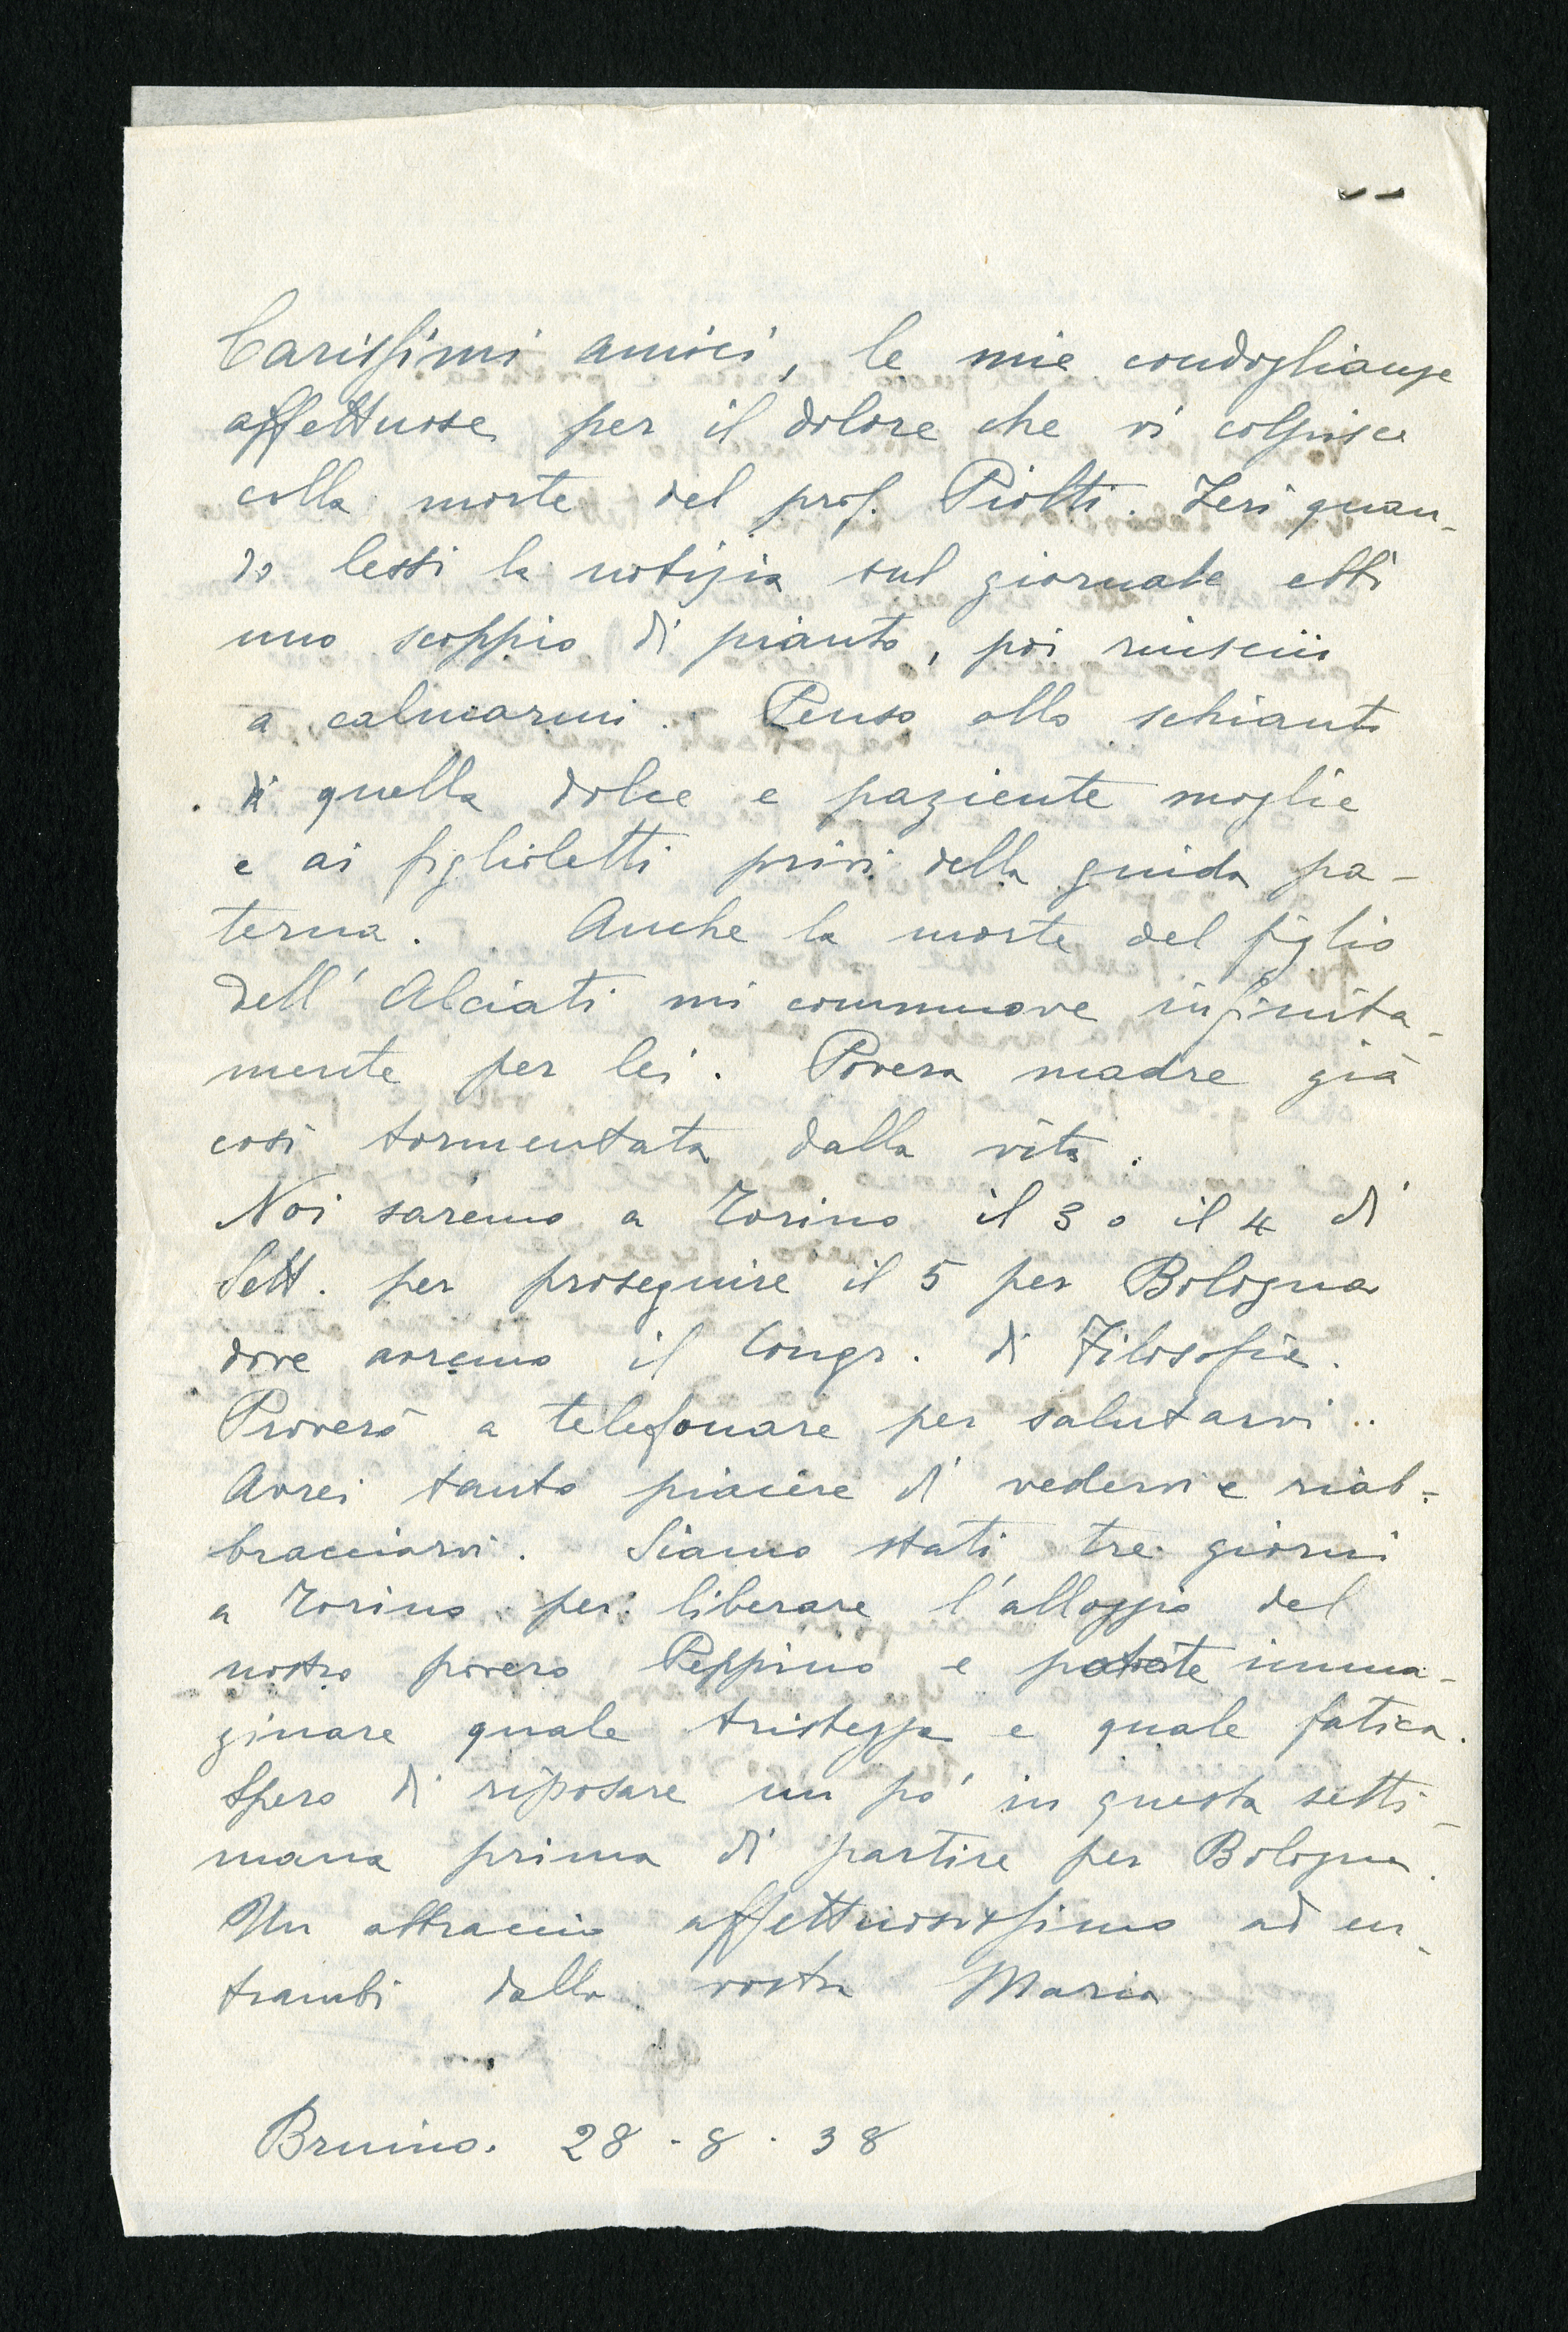 Carissimi amici, le mie condoglianze
affettuose per il dolore che vi colpisce
colla morte del prof. Piolti. Ieri quan-
do lessi la notizia sul giornale ebbi
uno scoppio di pianto, poi riuscii
a calmarmi. Penso allo schianto
di quella dolce e paziente moglie
e ai figlioletti privi della guida pa-
terna. Anche la morte del figlio
dell'Alciati mi commuove infinita-
mente per lei. Povera madre già
così tormentata dalla vita.
Noi saremo a Torino il 3 o il 4 di
Sett. per proseguire il 5 per Bologna
dove avremo il Congr. di Filosofia.
Proverò a telefonare per salutarvi..
Avrei tanto piacere di vedervi e riab-
bracciarvi. Siamo stati tre giorni
a Torino per liberare l'alloggio del
nostro povero Peppino e potete imma-
ginare quale tristezza e quale fatica.
Spero di riposare un pò in questa setti-
mana prima di partire per Bologna.
Un abbraccio affettuosissimo ad en-
trambi dalla vostra Maria
Bruino. 28 . 8 . 38